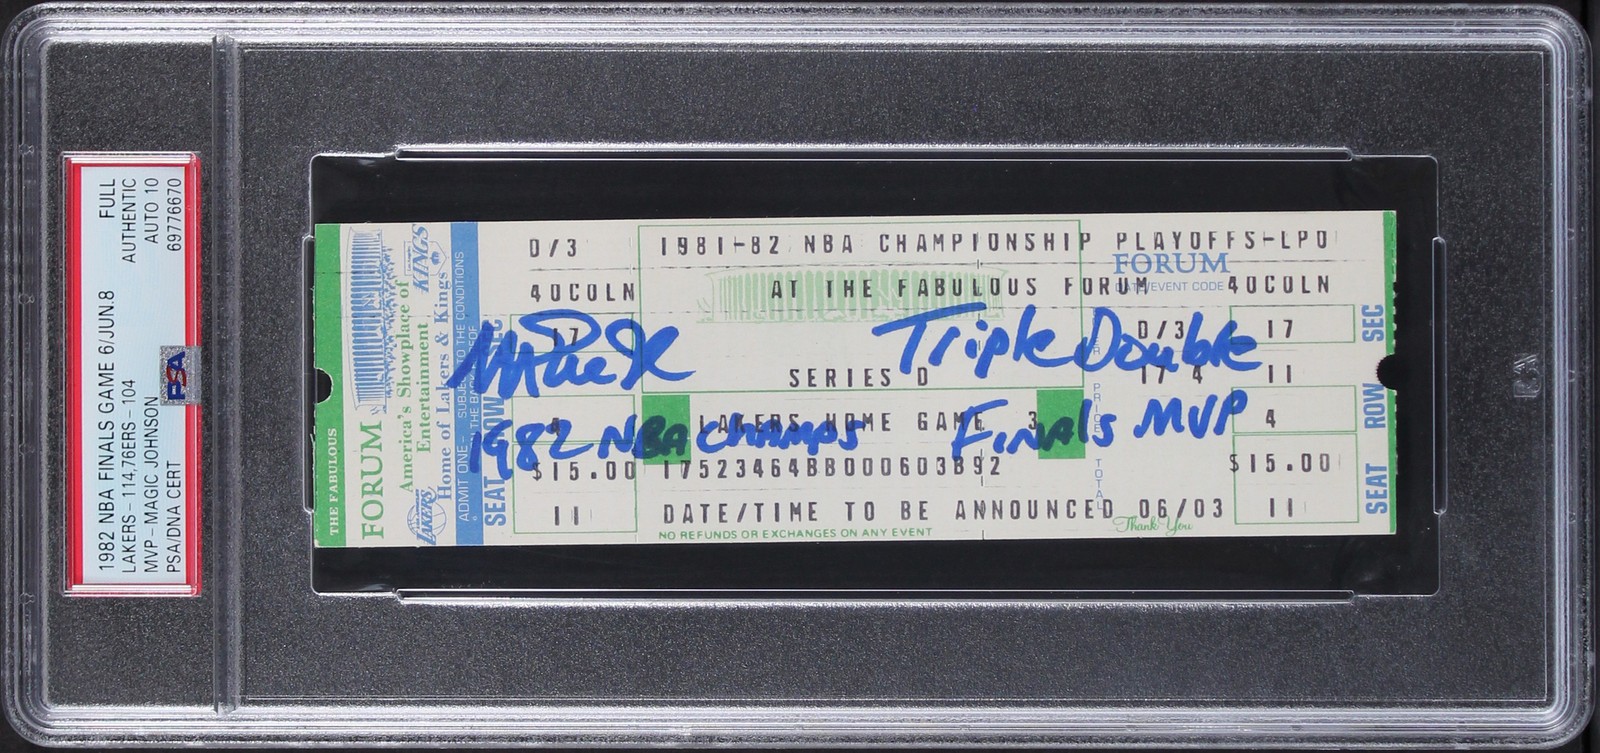 1982 NBA FINALS GAME 6/JUN.8 FULL
LAKERS - 114,76ERS - 104 AUTHENTIC
MVP - MAGIC JOHNSON AUTO 10
PSA/DNA CERT 69776670
PSA
THE FABULOUS
FORUM
America's Showplace of
Entertainment
Home of Lakers & Kings
KINGS
LAKERS
ADMIT ONE - SUBJECT TO THE CONDITIONS
SEAT ROW SEC
D/3 1981-82 NBA CHAMPIONSHIP PLAYOFFS-LPD
FORUM
40COLN AT THE FABULOUS FORUM 40COLN
DATE/EVENT CODE
17 D/3 17
Magic Triple Double
SERIES D 17 4 11
4 LAKERS HOME GAME 3 4
1982 NBA Champs Finals MVP
$15.00 17523464BB000603B92 $15.00
PRICE
TOTAL
11 DATE/TIME TO BE ANNOUNCED 06/03 11
NO REFUNDS OR EXCHANGES ON ANY EVENT
Thank You
SEAT ROW SEC